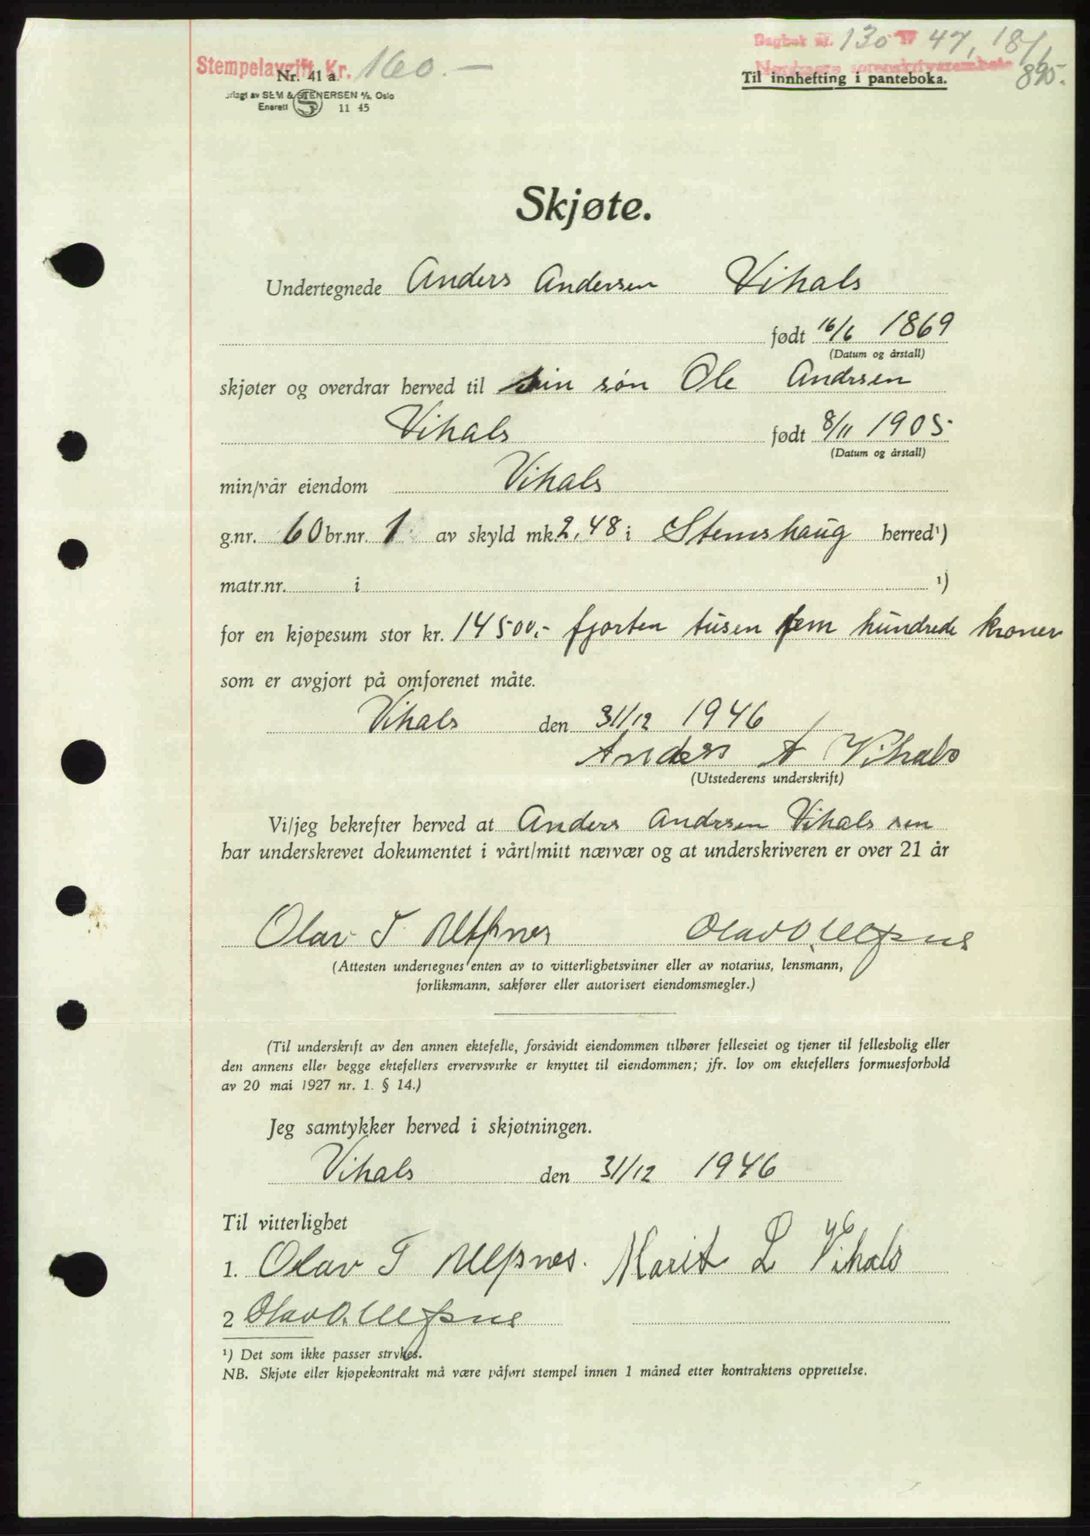 Stempelavgift Kr. 160.—
Dagbok nr. 130 19 47, 18/1
Nordmøre sorenskriverembete
890.-
Nr. 41 a.
Til innhefting i panteboka.
rlagt av SEM & STENERSEN A/S, Oslo
Enerett S 11 45
Skjøte.
Undertegnede Anders Andersen Vihals
født 16/6 1869
(Datum og årstall)
skjøter og overdrar herved til sin søn Ole Andrsen
Vihals født 8/11 1905
(Datum og årstall)
min/vår eiendom Vihals
g.nr. 60 br.nr. 1 av skyld mk. 2,48 i Stemshaug herred¹)
matr.nr. i ¹)
for en kjøpesum stor kr. 14500,- fjorten tusen fem hundrede kroner
som er avgjort på omforenet måte.
Vihals den 31/12 1946
Anders A Vihals
(Utstederens underskrift)
Vi/jeg bekrefter herved at Anders Andrsen Vihals sen
har underskrevet dokumentet i vårt/mitt nærvær og at underskriveren er over 21 år
Olav T Ulfsnes Olav O. Ulfsnes
(Attesten undertegnes enten av to vitterlighetsvitner eller av notarius, lensmann,
forliksmann, sakfører eller autorisert eiendomsmegler.)
(Til underskrift av den annen ektefelle, forsåvidt eiendommen tilhører felleseiet og tjener til fellesbolig eller
den annens eller begge ektefellers ervervsvirke er knyttet til eiendommen; jfr. lov om ektefellers formuesforhold
av 20 mai 1927 nr. 1. § 14.)
Jeg samtykker herved i skjøtningen.
Vihals den 31/12 1946
Til vitterlighet
1. Olav T Ulfsnes. Marit L Vihals
2 Olav O. Ulfsnes
¹) Det som ikke passer strykes.
NB. Skjøte eller kjøpekontrakt må være påført stempel innen 1 måned etter kontraktens opprettelse.